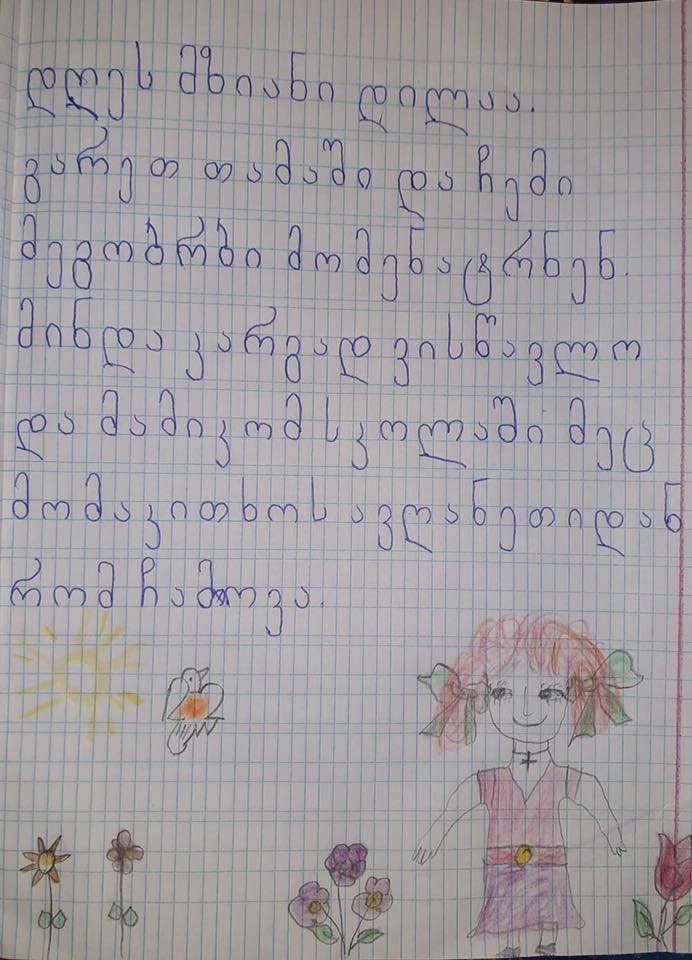 დღეს მზიანი დილაა.
გარეთ თამაში და ჩემი
მეგობრები მომენატრნენ.
მინდა კარგად ვისწავლო
და მამიკომ სკოლაში მეც
მომაკითხოს ავღანეთიდან
რომ ჩამოვა.